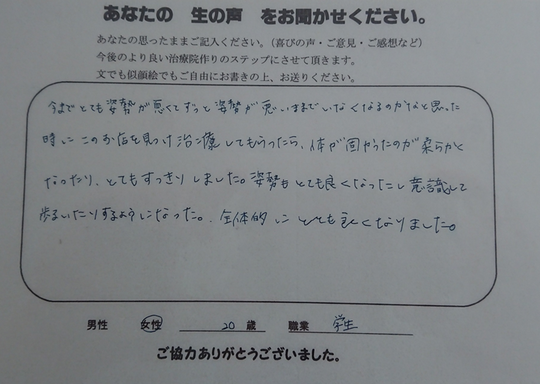 あなたの 生の声 をお聞かせください。
あなたの思ったままご記入ください。(喜びの声・ご意見・ご感想など)
今後のより良い治療院作りのステップにさせて頂きます。
文でも似顔絵でもご自由にお書きの上、お送りください。
今までとても姿勢が悪くてずっと姿勢が悪いままでいなくなるのかなと思った
時にこのお店を見つけ治療してもらったら、体が固かったのが柔らかく
なったり、とてもすっきりしました。姿勢もとても良くなったし意識して
歩るいたりするようになった。全体的にとても良くなりました。
男性 女性 20 歳 職業 学生
ご協力ありがとうございました。